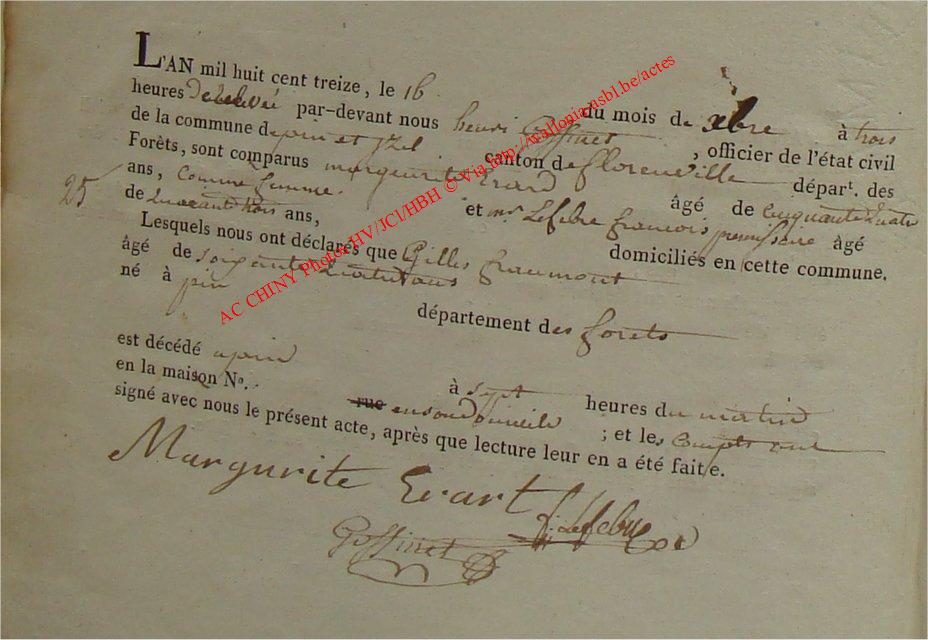 L'AN mil huit cent treize, le 16 du mois de xbre à trois
heures de relevée par-devant nous henri Goffinet , officier de l'état civil
de la commune de pin et yzel canton de florenville départ. des
Forêts, sont comparus marguerite Evard âgé de Cinquante quatre
ans, Comme femme. et mr Lefebre francois âgé
25 de quarant trois ans, domiciliés en cette commune.
Lesquels nous ont déclarés que Gilles fraumont
âgé de soixante quatre ans
né à pin département des forets
est décédé a pin à sept heures du matin
en la maison No. rue en son domicile ; et les comparts ont
signé avec nous le présent acte, après que lecture leur en a été faite.
Margurite Evart
f. Lefebre
Goffinet
AC CHINY Photos HV/JCI/HBH © Via http://wallonia.asbl.be/actes